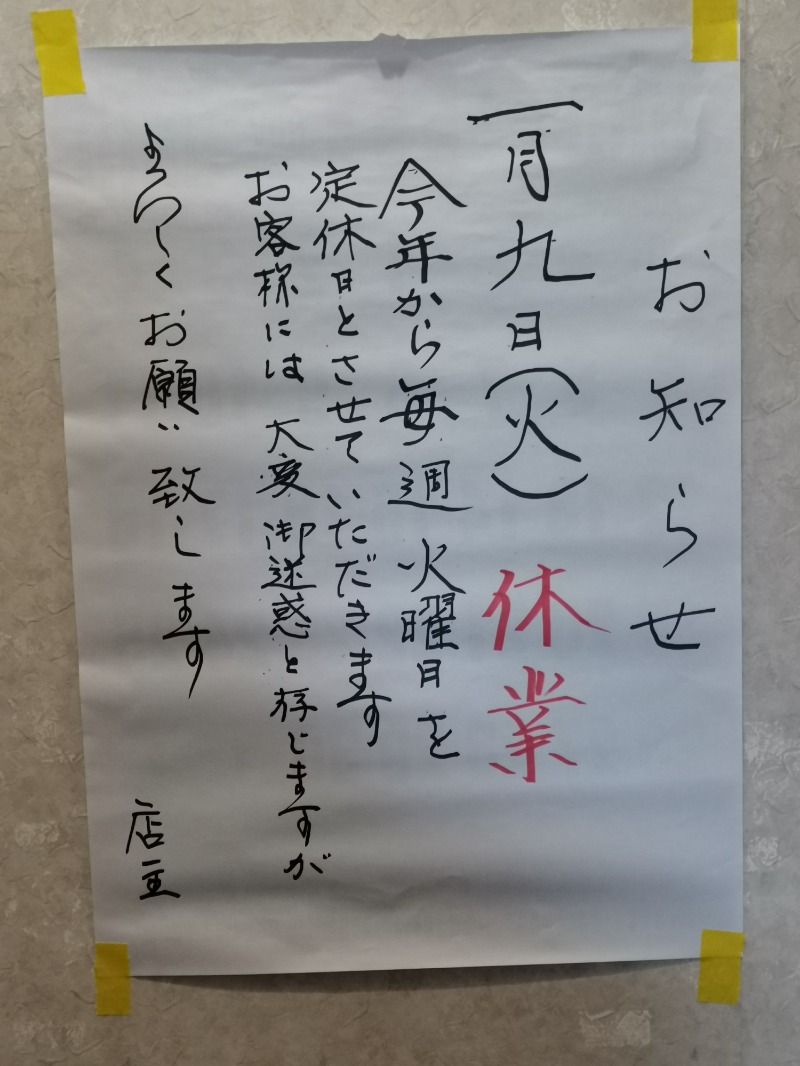 お知らせ
一月九日(火)休業
今年から毎週火曜日を
定休日とさせていただきます
お客様には大変御迷惑と存じますが
よろしくお願い致します
店主